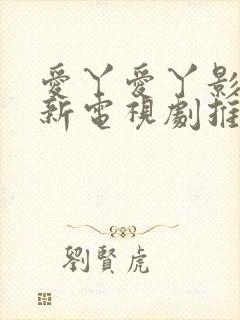 愛丫愛丫影
新電視劇推
劉賢虎